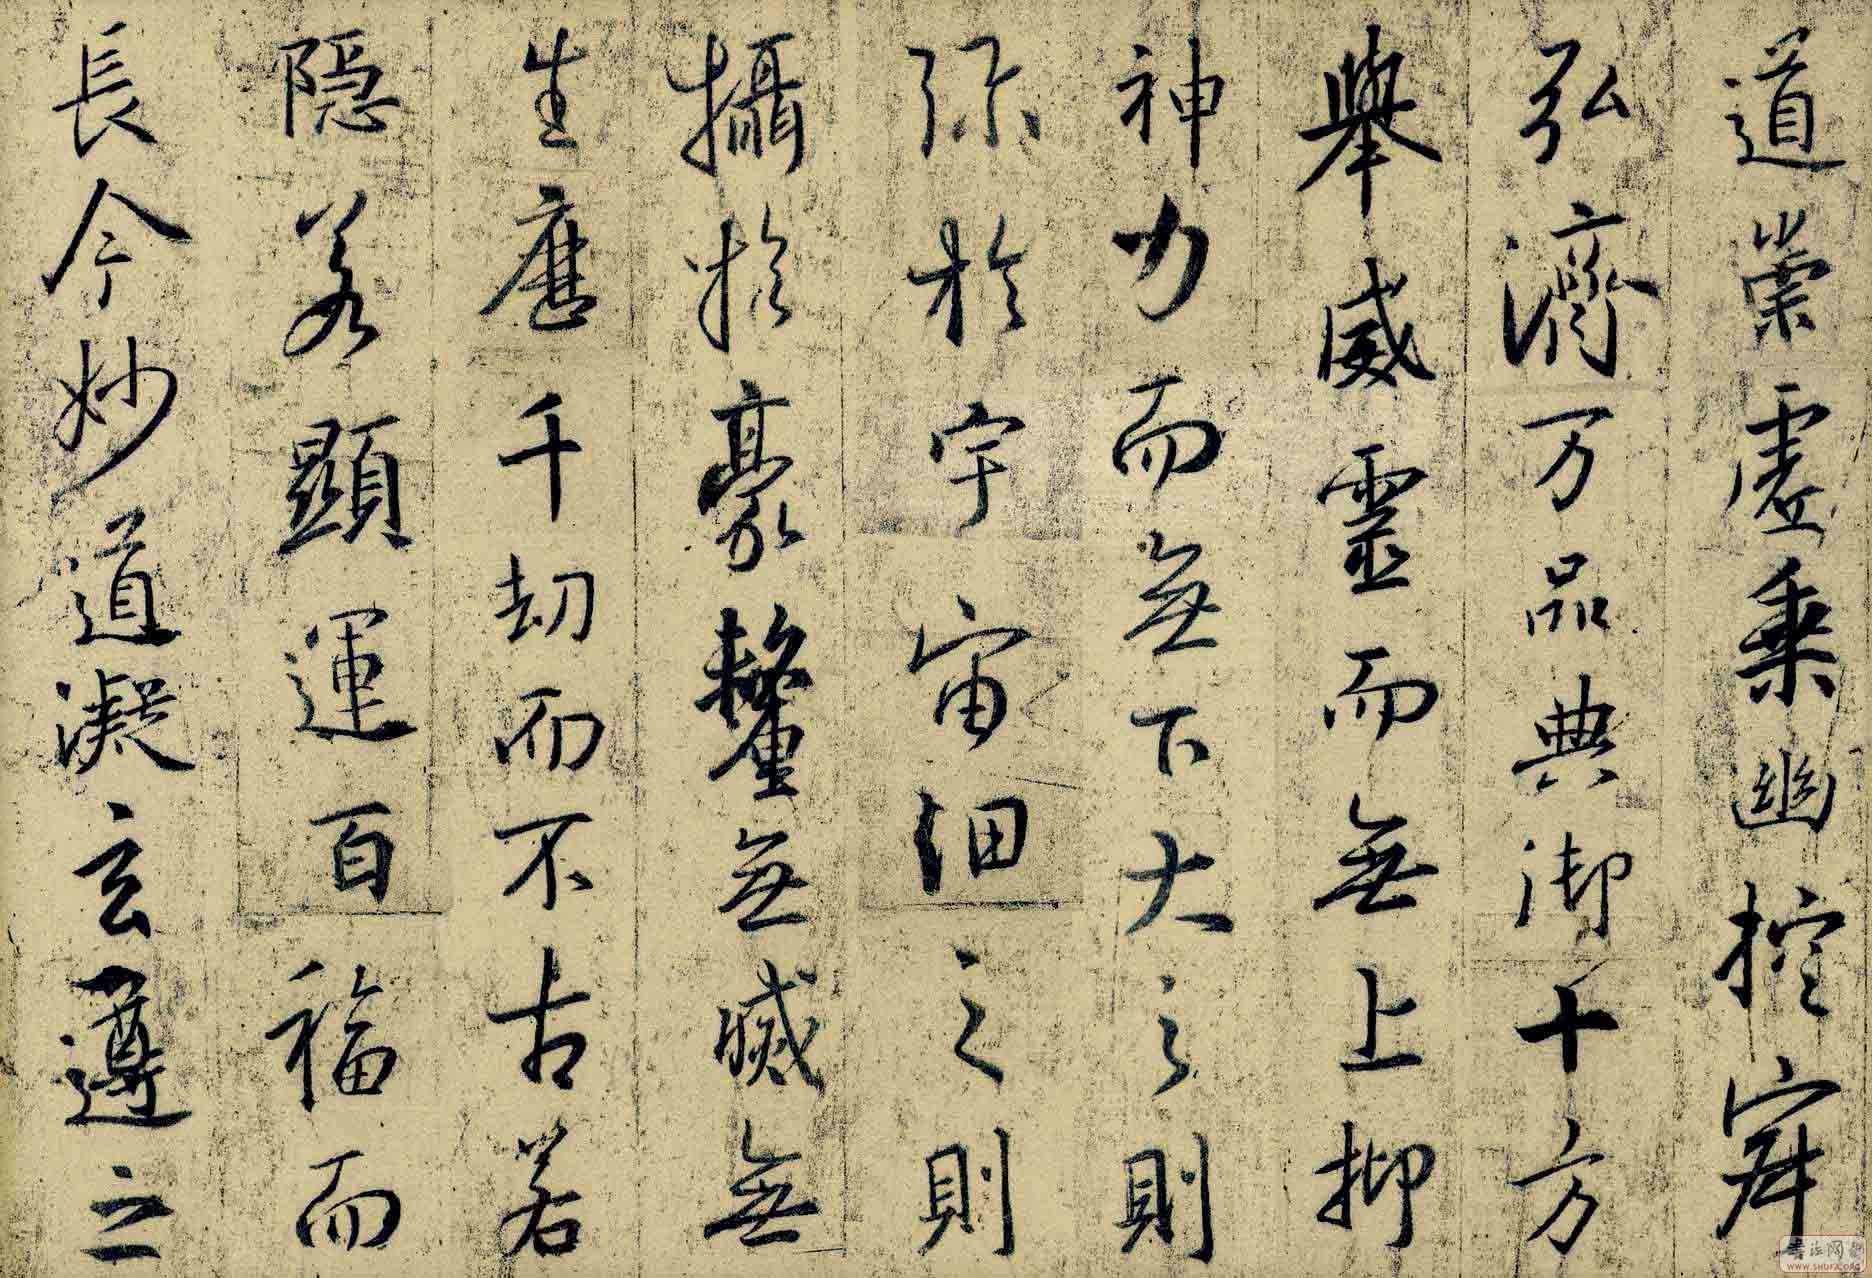 道崇虛乘幽控寂
弘濟万品典御十方
舉威靈而無上抑
神力而無下大之則
弥於宇宙細之則
攝於豪釐無滅無
生歷千劫而不古若
隱若顯運百福而
長今妙道凝玄遵之
WWW.SHUFA.ORG